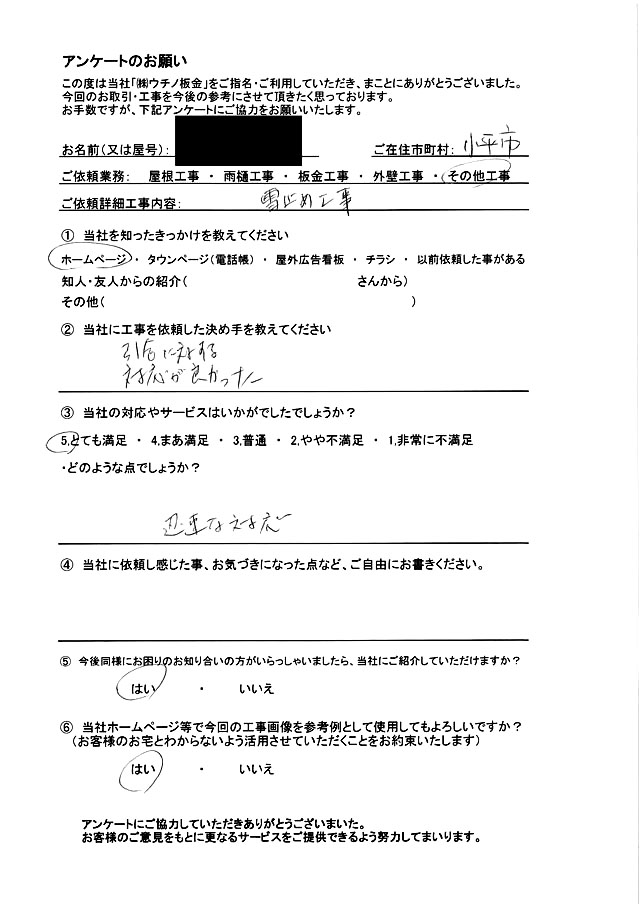 アンケートのお願い
この度は当社「㈱ウチノ板金」をご指名・ご利用していただき、まことにありがとうございました。
今回のお取引・工事を今後の参考にさせて頂きたく思っております。
お手数ですが、下記アンケートにご協力をお願いいたします。
お名前(又は屋号): ご在住市町村: 小平市
ご依頼業務: 屋根工事 ・ 雨樋工事 ・ 板金工事 ・ 外壁工事 ・ その他工事
ご依頼詳細工事内容: 雪止め工事
① 当社を知ったきっかけを教えてください
ホームページ ・ タウンページ(電話帳) ・ 屋外広告看板 ・ チラシ ・ 以前依頼した事がある
知人・友人からの紹介( さんから)
その他( )
② 当社に工事を依頼した決め手を教えてください
に対する
対応が良かった
③ 当社の対応やサービスはいかがでしたでしょうか?
5,とても満足 ・ 4,まあ満足 ・ 3,普通 ・ 2,やや不満足 ・ 1,非常に不満足
・どのような点でしょうか?
迅速な対応
④ 当社に依頼し感じた事、お気づきになった点など、ご自由にお書きください。
⑤ 今後同様にお困りのお知り合いの方がいらっしゃいましたら、当社にご紹介していただけますか?
はい ・ いいえ
⑥ 当社ホームページ等で今回の工事画像を参考例として使用してもよろしいですか?
(お客様のお宅とわからないよう活用させていただくことをお約束いたします)
はい ・ いいえ
アンケートにご協力していただきありがとうございまいた。
お客様のご意見をもとに更なるサービスをご提供できるよう努力してまいります。